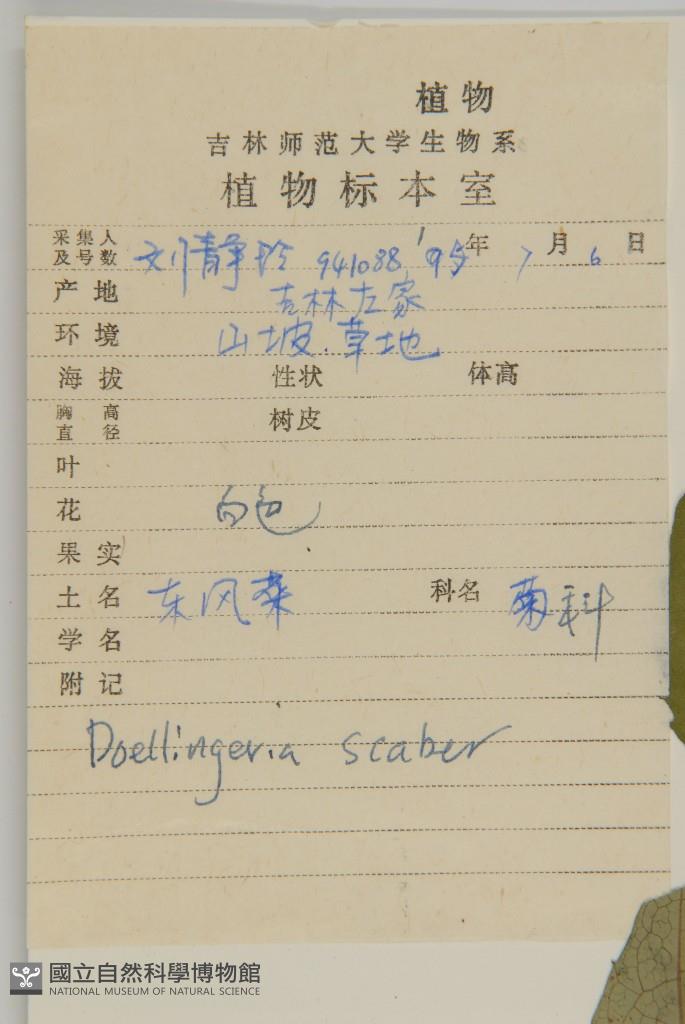 植物
吉林师范大学生物系
植物标本室
采集人及号数 刘静玲 941088 '95年 7月 6日
产地 吉林左家
环境 山坡.草地
海拔 性状 体高
胸高直径 树皮
叶
花 白色
果实
土名 东风菜 科名 菊科
学名
附记
Doellingeria scaber
國立自然科學博物館
NATIONAL MUSEUM OF NATURAL SCIENCE